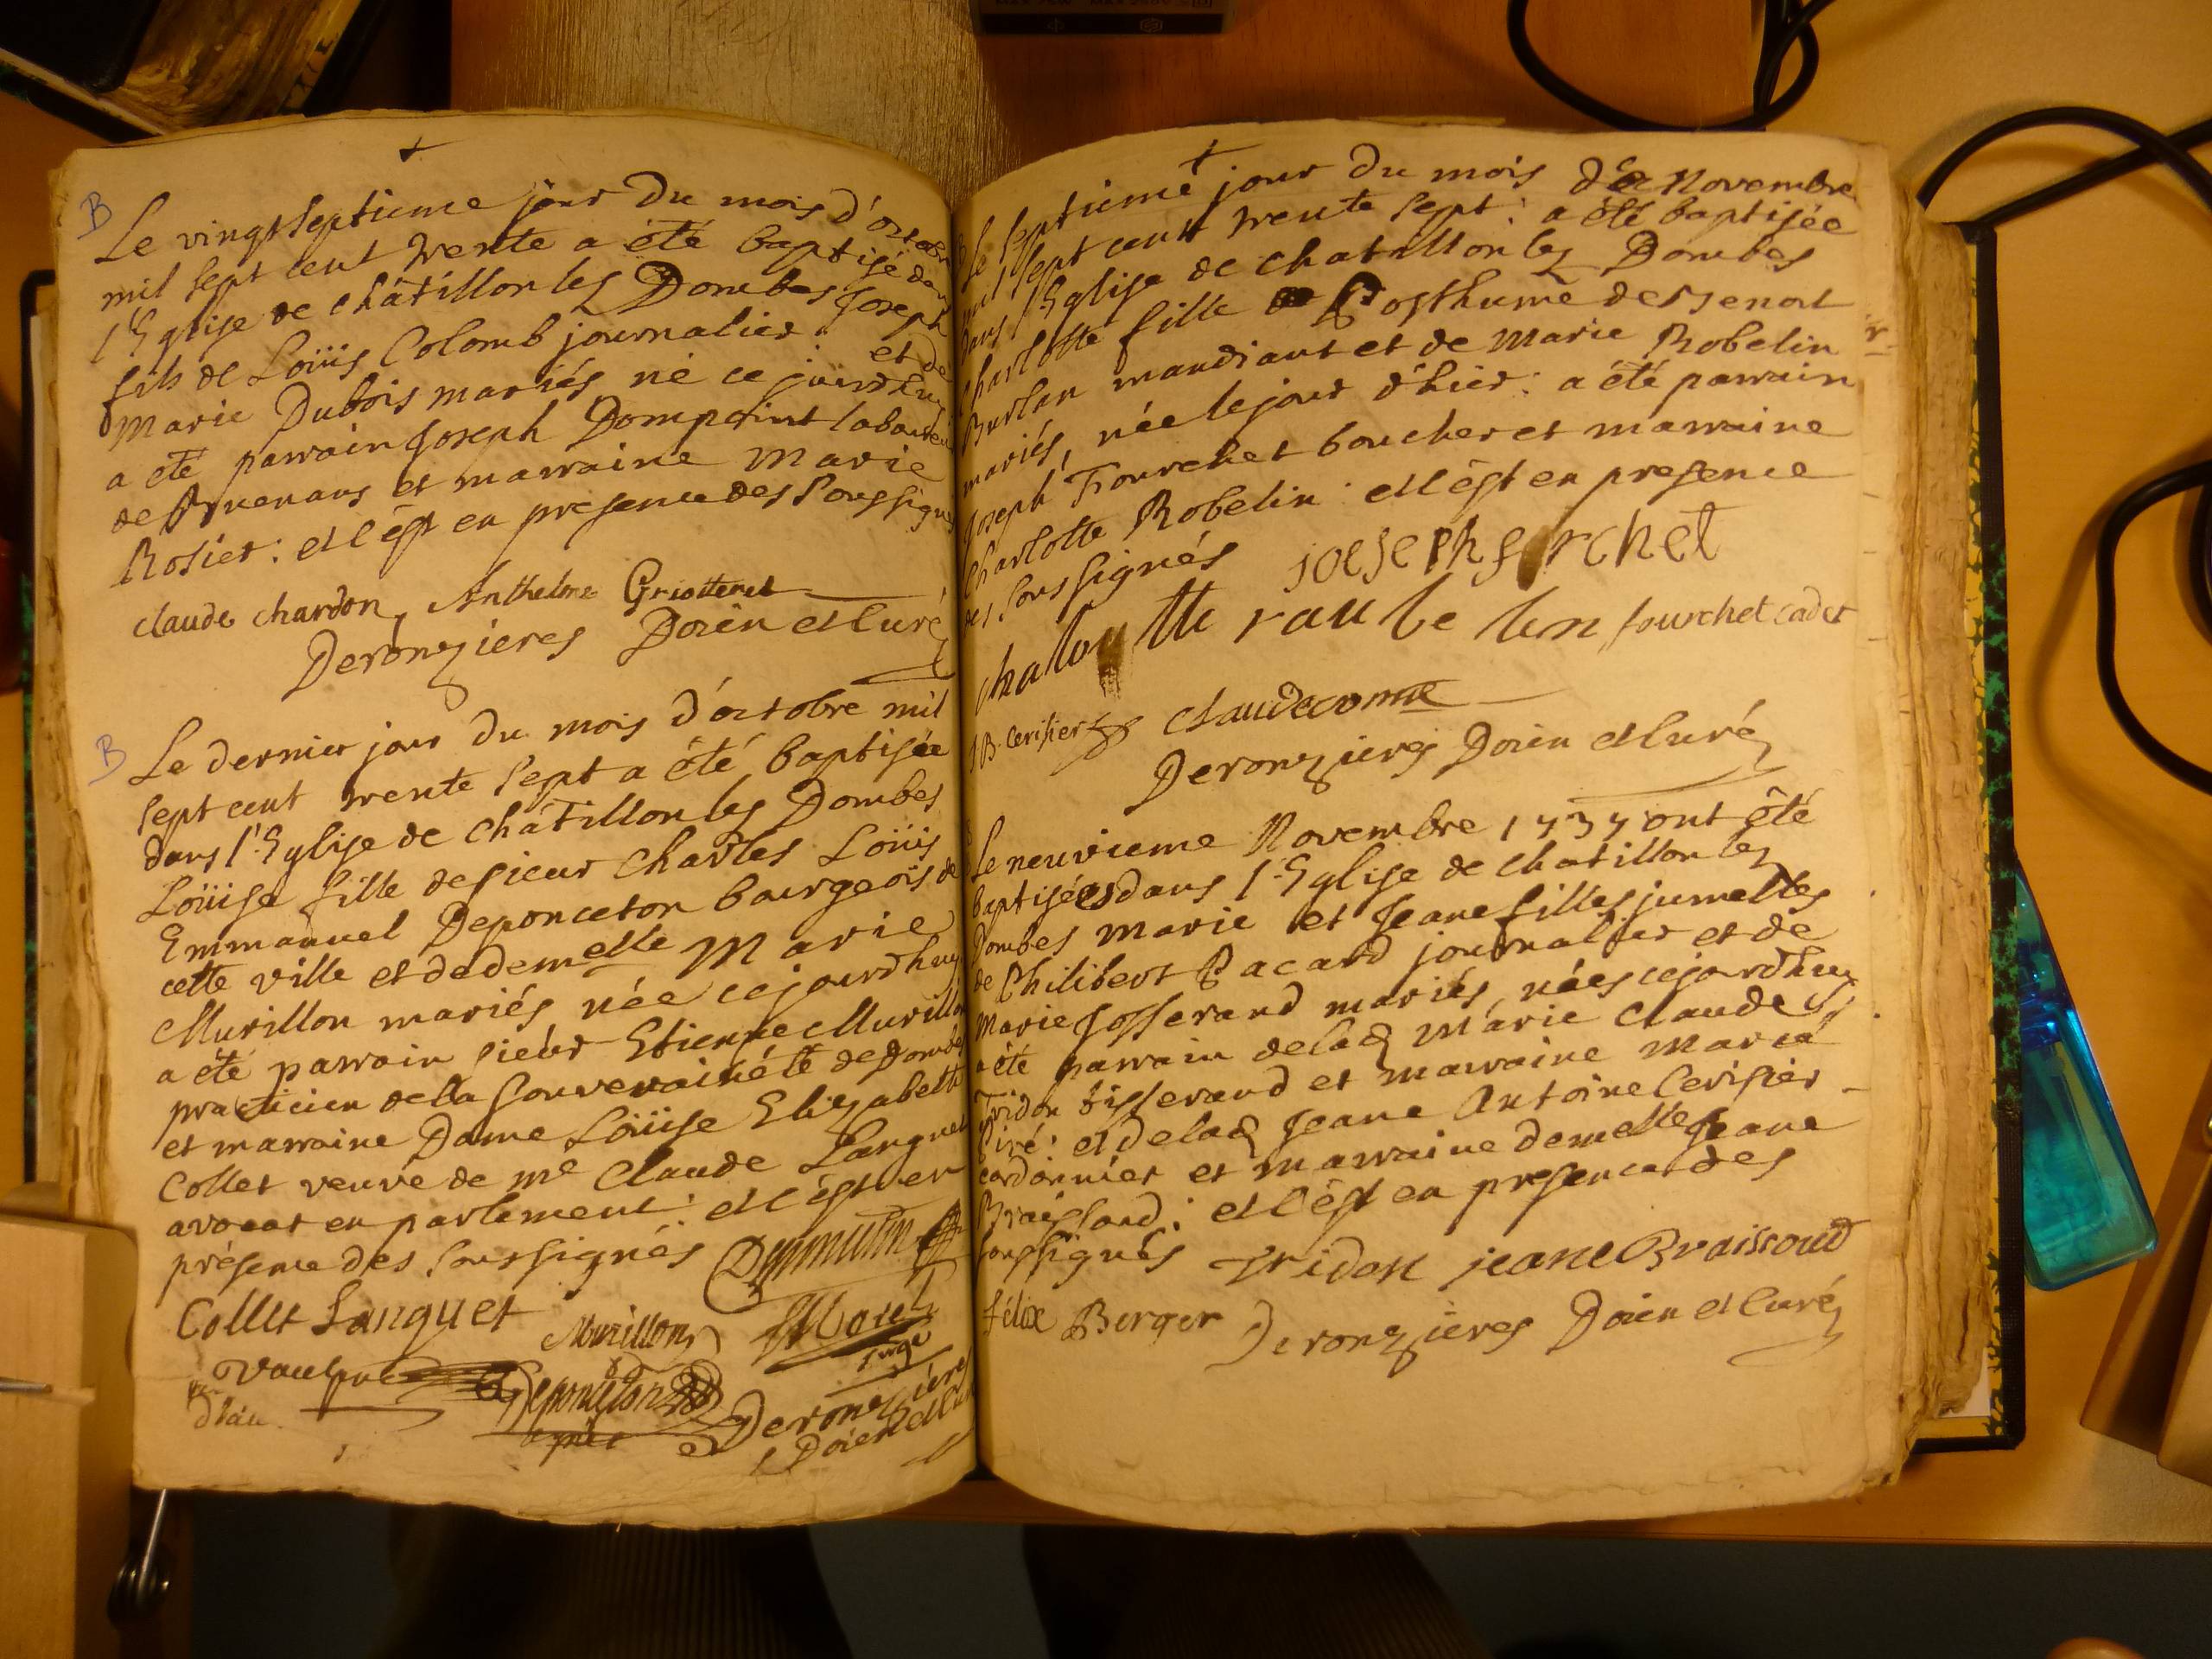 B
Le vingtseptieme jour du mois d'octobre
mil sept cent trente a été baptisé dans
l'Eglise de châtillon les Dombes Joseph
fils de Loüis Colomb journalier et de
Marie Dubois mariés né ce jourdhuy
a été parrain Joseph Dompoint laboureur
de et marraine Marie
Rosier : et c'est en presence des soussignés
claude chardon, Anthelme Griotteret
Deronzieres Doien et curé
B
Le dernier jour du mois d'octobre mil
sept cent trente sept a été baptisée
dans l'Eglise de châtillon les Dombes
Loüise fille de sieur Charles Loüis
Emmanuel Deponceton bourgeois de
cette ville et de demelle Marie
Murillon mariés née cejourdhuy
a été parrain sieur Etienne Murillon
practicien de la souveraineté de Dombes
et marraine Dame Loüise Elizabeth
Collet veuve de me Claude Languet
avocat en parlement : et c'est en
présence des soussignés
Collet Languet Murillon
Deponceton
père Deronzières
Doien et curé
Le septieme jour du mois de Novembre
mil sept cent trente sept : a été baptisée
dans l'Eglise de chatillon les Dombes
Charlotte fille Posthume de Benoit
Burlan mandiant et de Marie Robelin
mariés, née le jour d'hier : a été parrain
Joseph Fourchet boucher et marraine
Charlotte Robelin : et c'est en presence
des soussignés joeseph forchet
chalotte raubelin fourchet cadet
J B. Cerisier claude comte
Deronzieres Doien et curé
Le neuvieme Novembre 1737 ont été
baptisées dans l'Eglise de chatillon les
Dombes Marie et Jeane filles jumelles
de Philibert Pacard journalier et de
Marie Josserand mariés, nées cejourdhuy
a été parrain de lad Marie Claude
Tridon tisserand et marraine Marie
Piré : et de lad Jeane Antoine Cerisier
cordonnier et marraine demelle Jeane
Braissoud : et c'est en presence des
soussignés Tridon jeane Braissoud
félix Berger Deronzieres Doien et curé